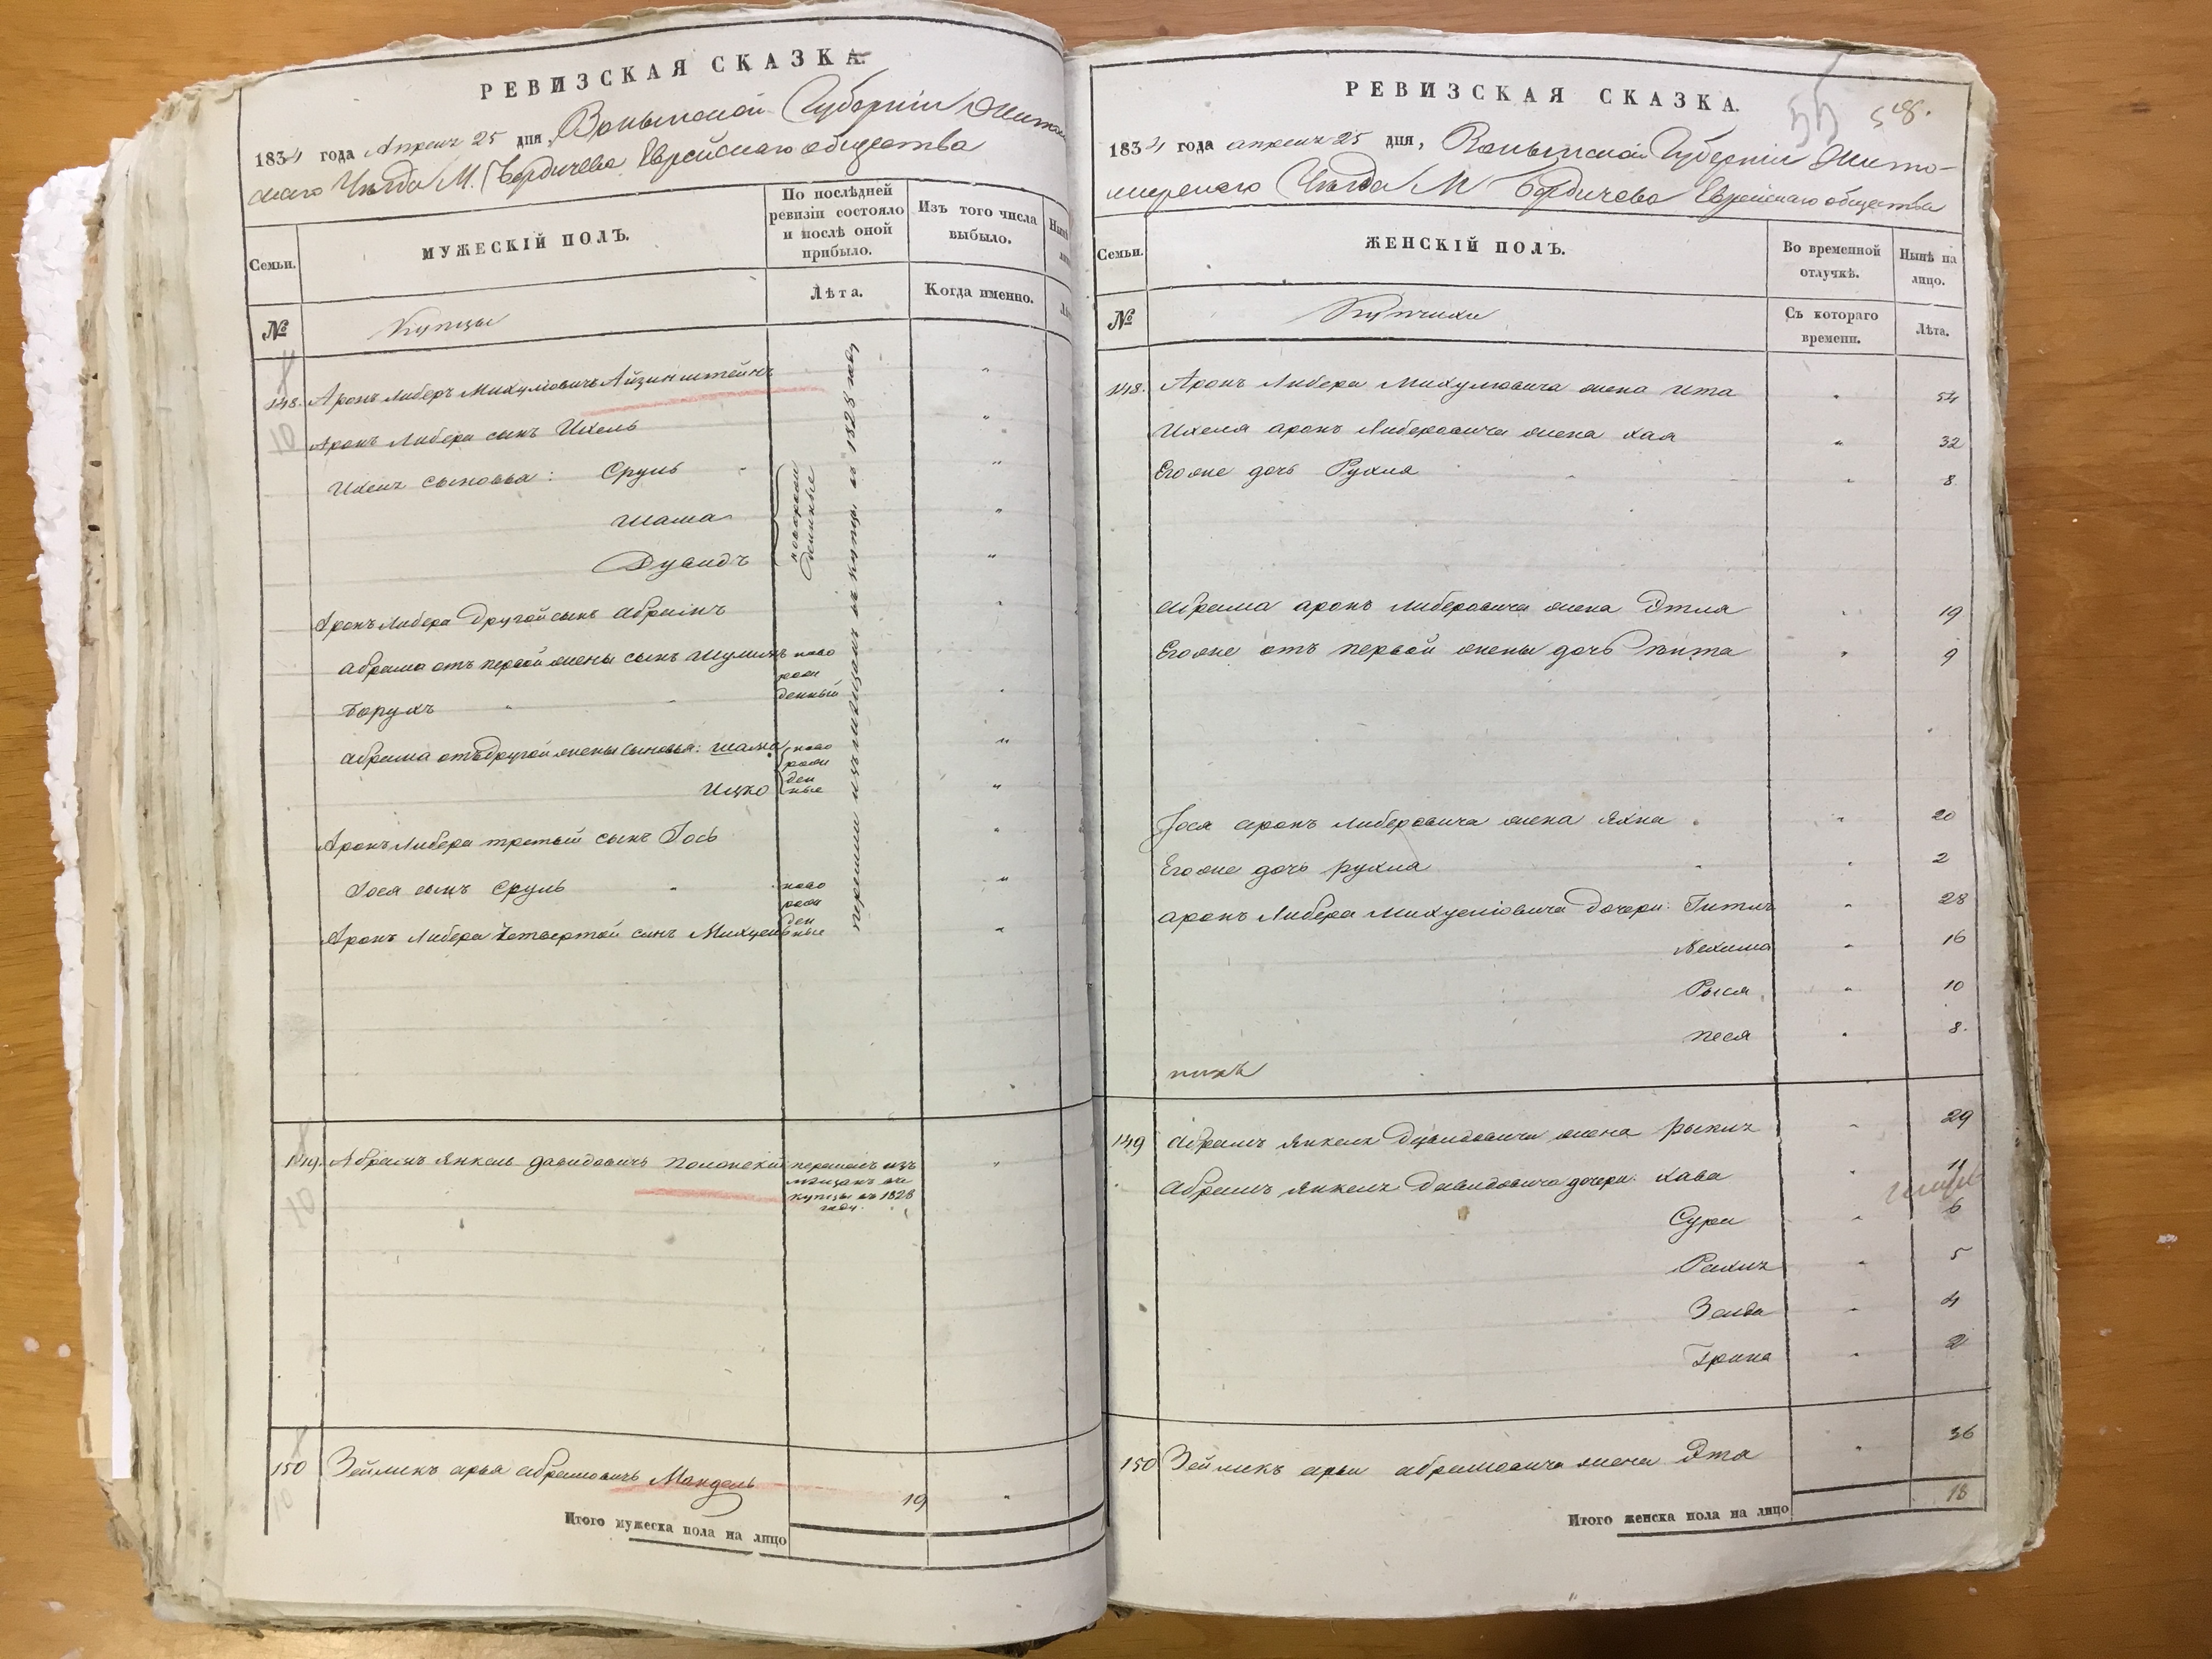 РЕВИЗСКАЯ СКАЗКА.
1834 года Апреля 25 дня, Волынской Губернiи Житом
скаго Уезда М. Бердичева Еврейскаго общества
Семьи.
МУЖЕСКIЙ ПОЛЪ.
По послѣдней ревизiи состояло и послѣ оной прибыло.
Изъ того числа выбыло.
Лѣта.
Когда именно.
№
Купцы
148. Аронъ Либеръ Михулiовичъ Айзинштейнъ
10
Аронъ Либера сынъ Ихель
Ихеля сыновья: Сруль
Шама
Дувидъ
новорожденные
перешли изъ мещанъ въ купцы въ 1828 году
Аронъ Либера Другой сынъ Абрамъ
Абрама отъ первой жены сынъ Шулимъ ново
рож
денный
Борухъ
Абрама отъ Другой жены сыновья: Шама ново
рож
Ицко ден
ные
Аронъ Либера третый сынъ Iось
Iося сынъ Сруль ново
рож
Аронъ Либера Четвертой сынъ Михуель ден
ные
149. Абрамъ Янкель Давидовичъ Полонскiй перешелъ изъ
мещанъ въ
купцы въ 1828
году.
10
150 Зейликъ Арья Абрамовичъ Мандель
19
10
Итого мужеска пола на лицо
РЕВИЗСКАЯ СКАЗКА.
58.
1834 года апреля 25 дня, Волынской Губернiи Жито-
мирскаго Уезда М Бердичева Еврейскаго общества
Семьи.
ЖЕНСКIЙ ПОЛЪ.
Во временной отлучкѣ.
Нынѣ на лицо.
№
Купчихи
Съ котораго времени.
Лѣта.
148. Аронъ Либера Михулiовича жена Ита 54
Ихеля аронъ Либеровича жена Хая 32
Его же дочь Рухля 8
Абрама аронъ Либеровича жена Этля 19
Его же отъ первой жены дочь 9
Iося аронъ Либеровича жена Яхна 20
Его же дочь рухля 2
аронъ Либера Михуелiовича дочери: Гитля 28
Нехима 16
Рыся 10
Песя 8.
149 Абрамъ Янкеля Дувидовича жена рыкля 29
Абрамъ Янкеля Давидовича дочери: Хава 11
Сура 6
Рахиль 5
Зелда 4
2
150 Зейликъ арьи абрамовича жена Эта 36
18
Итого женска пола на лицо